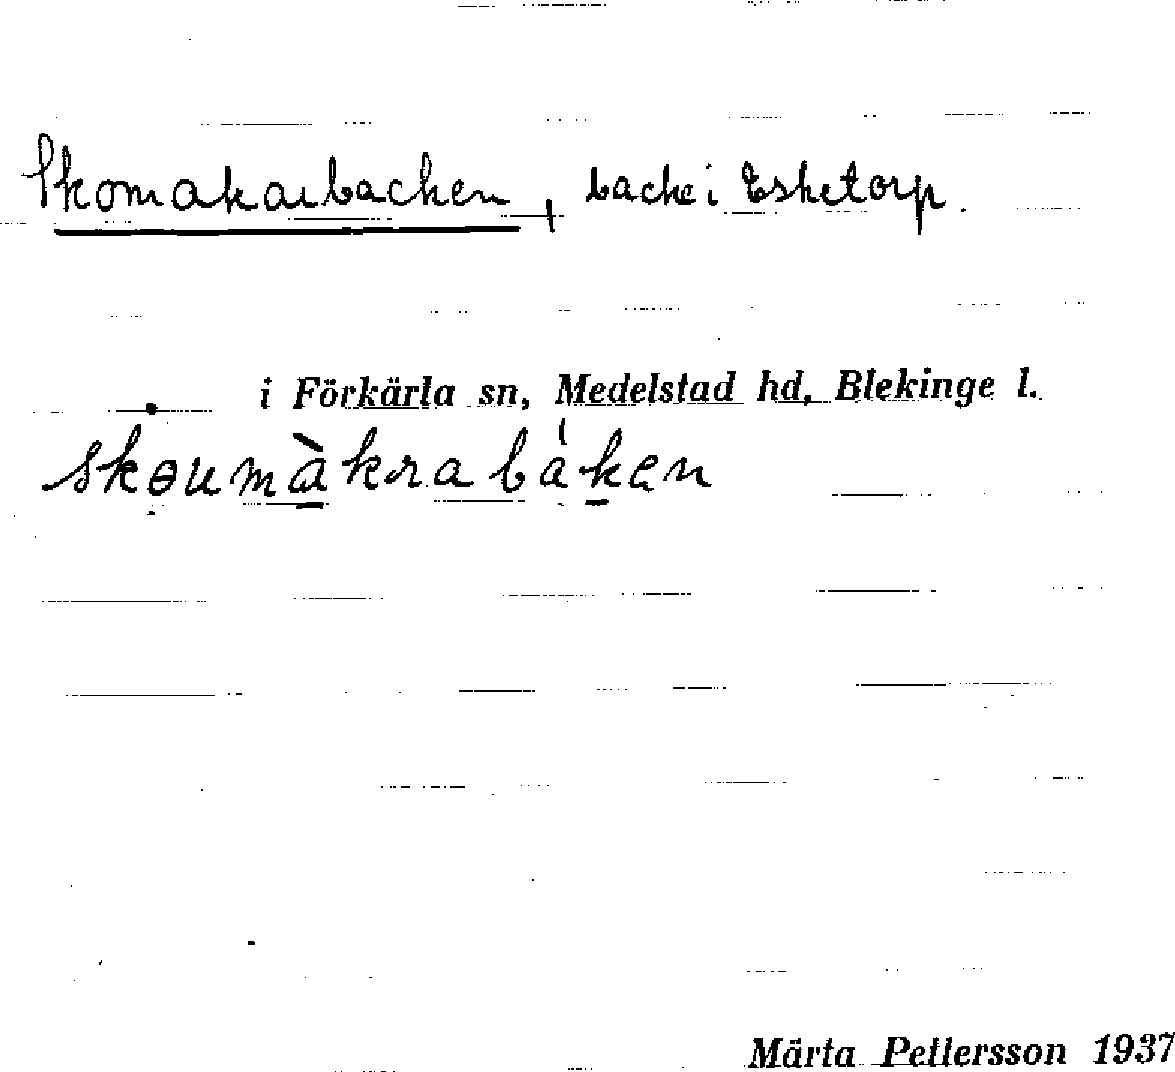 Skomakarbacken, backe i Esketorp.
i Förkärla sn, Medelstad hd, Blekinge l.
skɵumàkrabáken
Märta Pettersson 1937